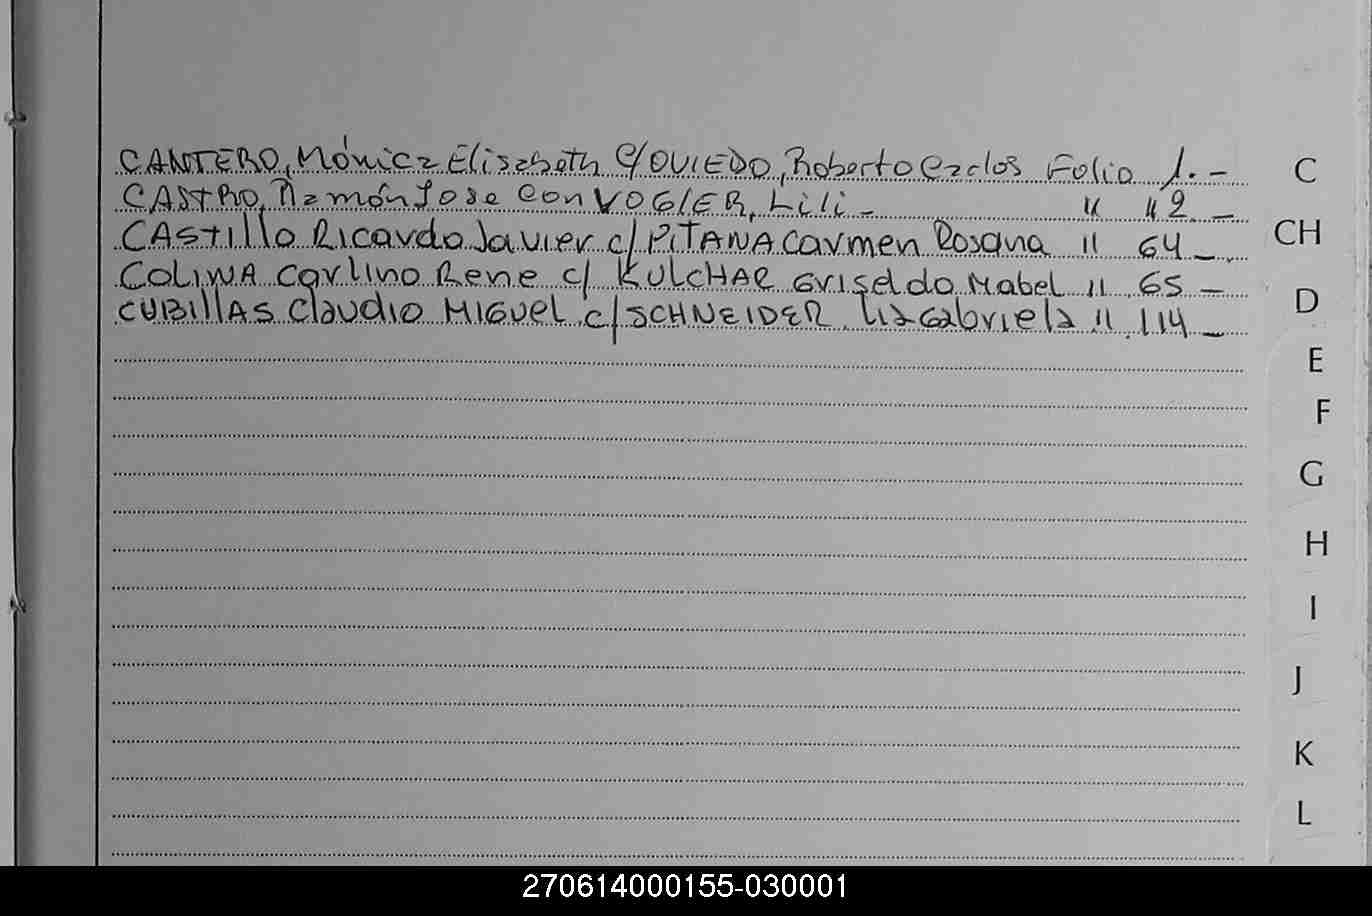 CANTERO, Mónica Elisabeth C/OVIEDO, Roberto Carlos Folio 1.-
CASTRO, Ramón Jose Con VOGLER, Lili - " " 2 -
CASTILLO Ricardo Javier c/ PITANA Carmen Rosana " 64 -
COLINA Carlino Rene c/ KULCHAR Griselda Mabel " 65 -
CUBILLAS Claudio MIGUEL c/ SCHNEIDER Lia Gabriela " 114 -
C
CH
D
E
F
G
H
I
J
K
L
270614000155-030001